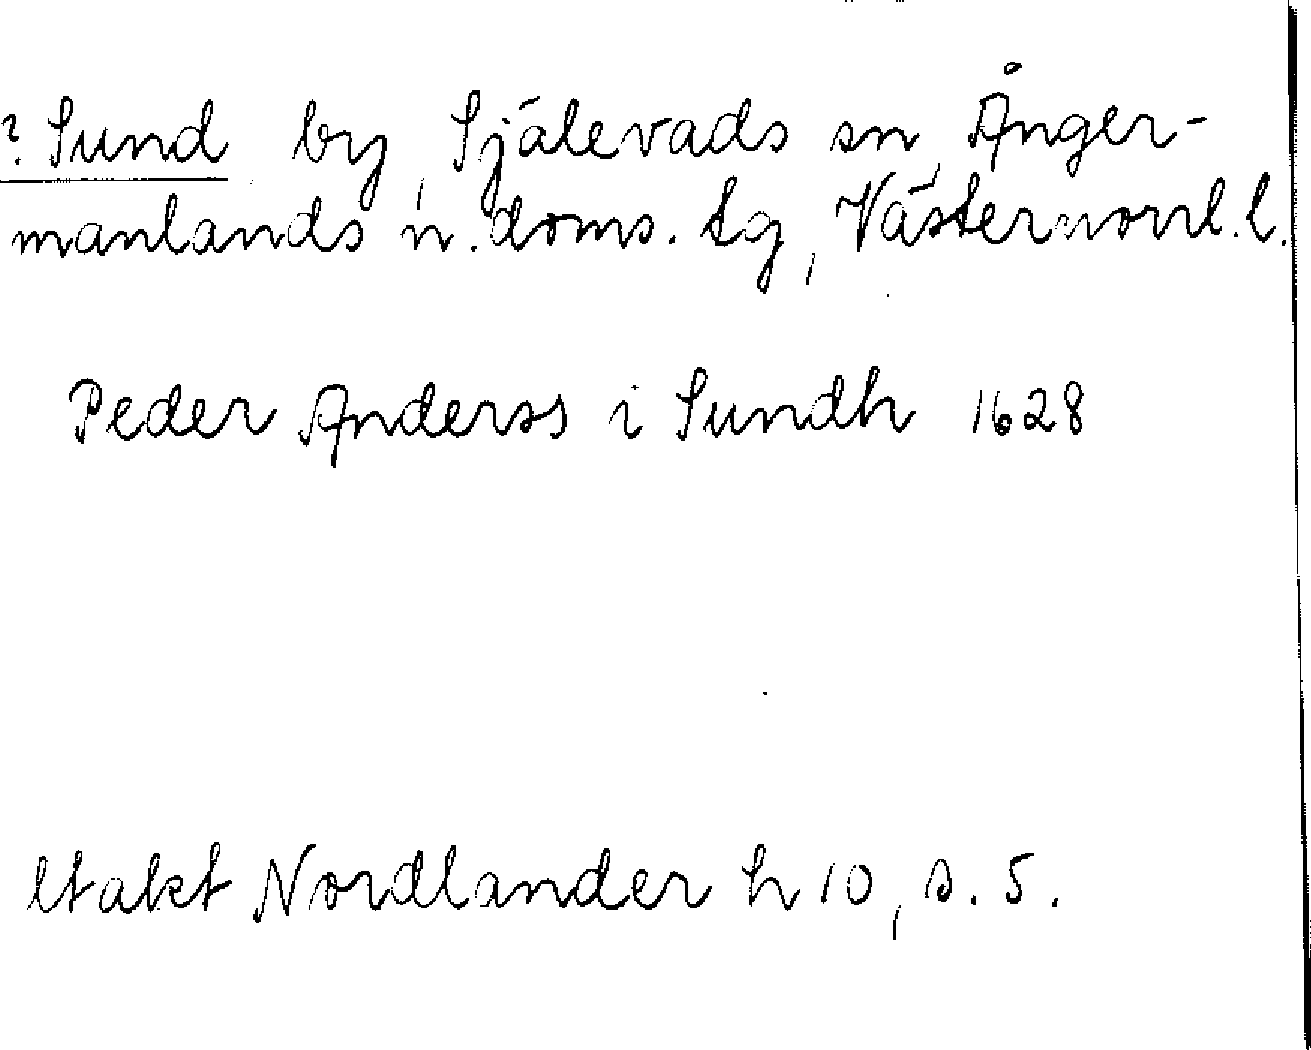 ? Sund by, Själevads sn, Ånger-
manlands n. doms. tg, Västernorrl. l.
Peder Anderss i Sundh 1628
Utakt Nordlander h 10, s. 5.